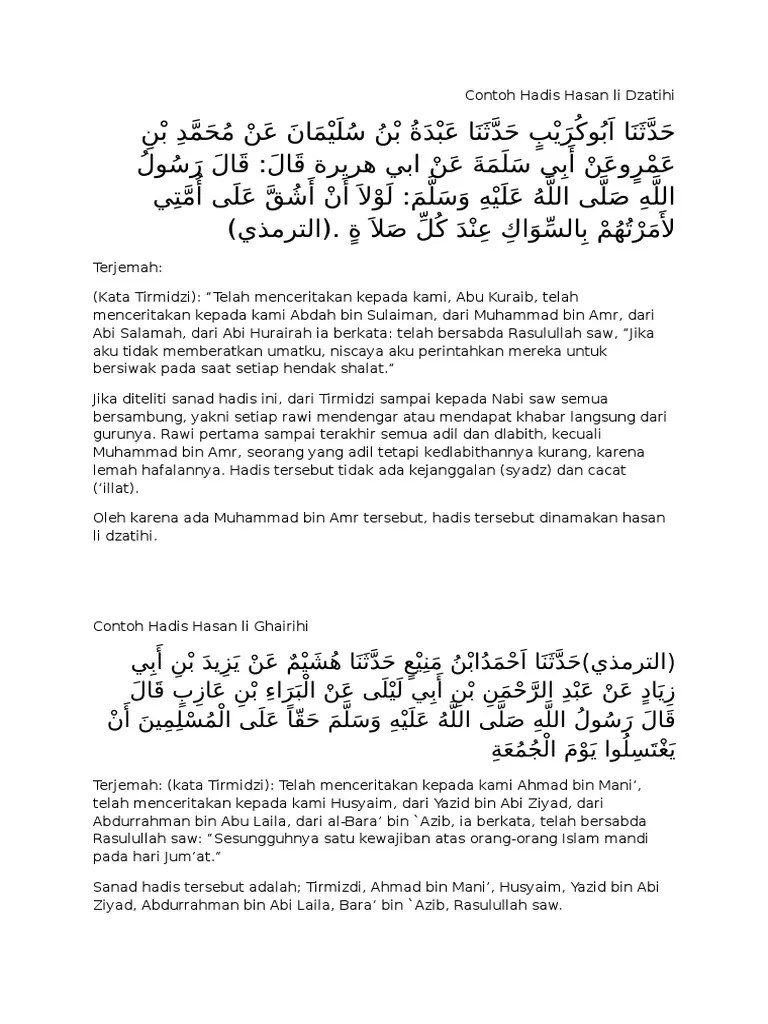 Contoh Hadis Hasan li Dzatihi
حَدَّثَنَا اَبُوكُرَيْبٍ حَدَّثَنَا عَبْدَةُ بْنُ سُلَيْمَانَ عَنْ مُحَمَّدِ بْنِ
عَمْرٍوعَنْ أَبِي سَلَمَةَ عَنْ ابي هريرة قَالَ: قَالَ رَسُولُ
اللَّهِ صَلَّى اللَّهُ عَلَيْهِ وَسَلَّمَ: لَوْلاَ أَنْ أَشُقَّ عَلَى أُمَّتِي
لأَمَرْتُهُمْ بِالسِّوَاكِ عِنْدَ كُلِّ صَلاَ ةٍ .(الترمذي)
Terjemah:
(Kata Tirmidzi): “Telah menceritakan kepada kami, Abu Kuraib, telah
menceritakan kepada kami Abdah bin Sulaiman, dari Muhammad bin Amr, dari
Abi Salamah, dari Abi Hurairah ia berkata: telah bersabda Rasulullah saw, “Jika
aku tidak memberatkan umatku, niscaya aku perintahkan mereka untuk
bersiwak pada saat setiap hendak shalat.”
Jika diteliti sanad hadis ini, dari Tirmidzi sampai kepada Nabi saw semua
bersambung, yakni setiap rawi mendengar atau mendapat khabar langsung dari
gurunya. Rawi pertama sampai terakhir semua adil dan dlabith, kecuali
Muhammad bin Amr, seorang yang adil tetapi kedlabithannya kurang, karena
lemah hafalannya. Hadis tersebut tidak ada kejanggalan (syadz) dan cacat
(‘illat).
Oleh karena ada Muhammad bin Amr tersebut, hadis tersebut dinamakan hasan
li dzatihi.
Contoh Hadis Hasan li Ghairihi
(الترمذي)حَدَّثَنَا اَحْمَدُابْنُ مَنِيْعٍ حَدَّثَنَا هُشَيْمٌ عَنْ يَزِيدَ بْنِ أَبِي
زِيَادٍ عَنْ عَبْدِ الرَّحْمَنِ بْنِ أَبِي لَيْلَى عَنْ الْبَرَاءِ بْنِ عَازِبٍ قَالَ
قَالَ رَسُولُ اللَّهِ صَلَّى اللَّهُ عَلَيْهِ وَسَلَّمَ حَقّاً عَلَى الْمُسْلِمِينَ أَنْ
يَغْتَسِلُوا يَوْمَ الْجُمُعَةِ
Terjemah: (kata Tirmidzi): Telah menceritakan kepada kami Ahmad bin Mani’,
telah menceritakan kepada kami Husyaim, dari Yazid bin Abi Ziyad, dari
Abdurrahman bin Abu Laila, dari al-Bara’ bin `Azib, ia berkata, telah bersabda
Rasulullah saw: “Sesungguhnya satu kewajiban atas orang-orang Islam mandi
pada hari Jum’at.”
Sanad hadis tersebut adalah; Tirmizdi, Ahmad bin Mani’, Husyaim, Yazid bin Abi
Ziyad, Abdurrahman bin Abi Laila, Bara’ bin `Azib, Rasulullah saw.